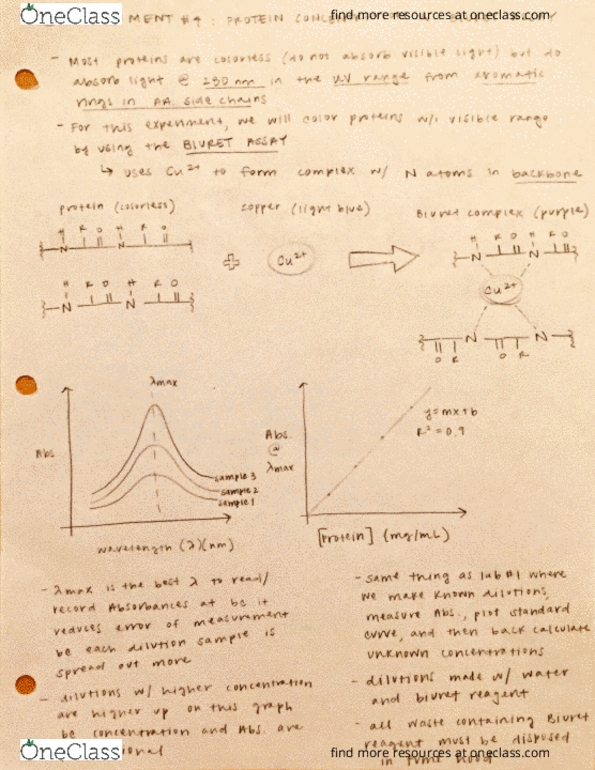 OneClass
find more resources at oneclass.com
MENT #4: PROTEIN
- Most proteins are colorless (do not absorb visible light) but do
absorb light @ 280 nm in the UV range from aromatic
rings in AA. side chains
- For this experiment, we will color proteins w/i visible range
by using the BIURET ASSAY
↳ Uses Cu2+ to form complex w/ N atoms in backbone
protein (colorless)
copper (light blue)
Biuret complex (purple)
H R O H R O
N N
H R O H R O
N N
+
Cu2+
H R O H R O
N N
Cu2+
N N
O R O R
λmax
Abs
sample 3
sample 2
sample 1
wavelength (λ)(nm)
Abs.
@
λmax
y=mx+b
R2=0.9
[Protein] (mg/mL)
- λmax is the best λ to read/
record Absorbances at bc it
reduces error of measurement
bc each dilution sample is
spread out more
- dilutions w/ higher concentration
are higher up on this graph
bc concentration and Abs. are
ional
- same thing as lab #1 where
we make known dilutions,
measure Abs., plot standard
curve, and then back calculate
unknown concentrations
- dilutions made w/ water
and biuret reagent
- all waste containing Biuret
reagent must be disposed
in fume hood
OneClass
find more resources at oneclass.com